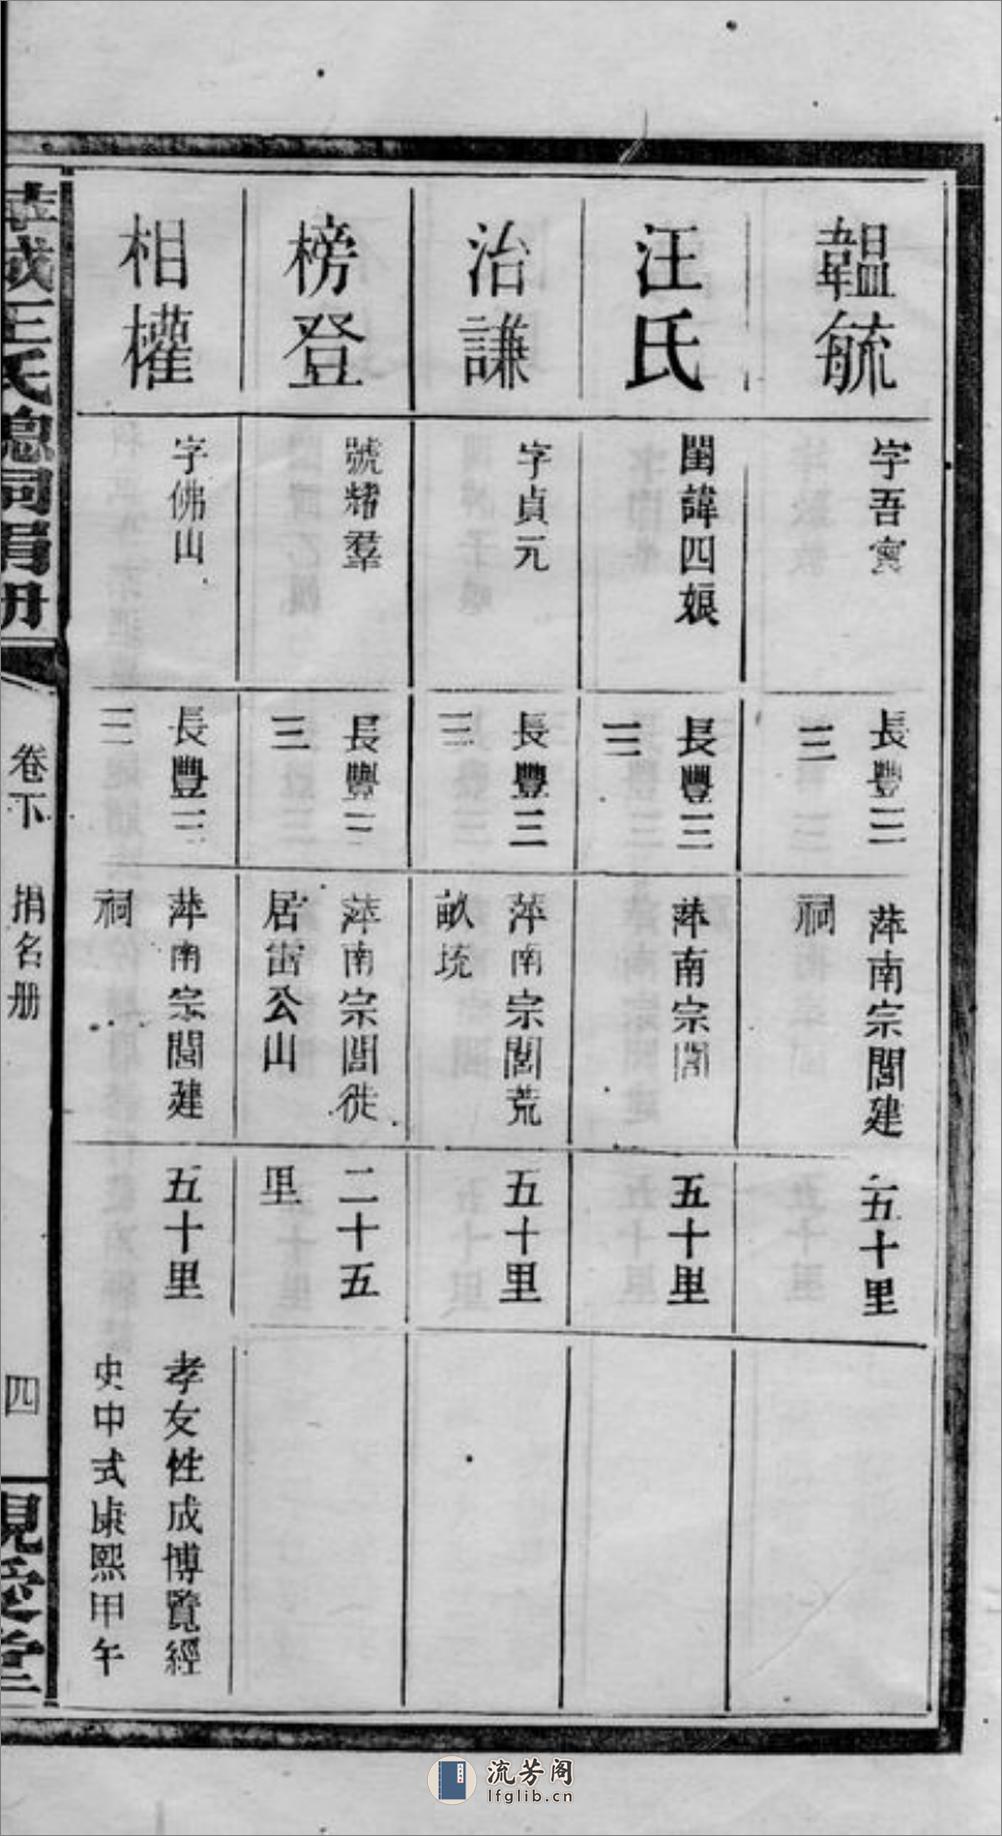 韞毓
字吾賓
長豐三
三
萍南宗閭建
祠
五十里
汪氏
閨諱四娘
長豐三
三
萍南宗閭
五十里
治謙
字貞元
長豐三
三
萍南宗閭荒
畝垸
五十里
榜登
號燿羣
長豐三
三
萍南宗閭徙
居雷公山
二十五
里
相權
字佛山
長豐三
三
萍南宗閭建
祠
五十里
孝友性成博覽經
史中式康熙甲午
萍城王氏總祠捐册
卷下
捐名册
四
親愛堂
流芳阁
lfglib.cn